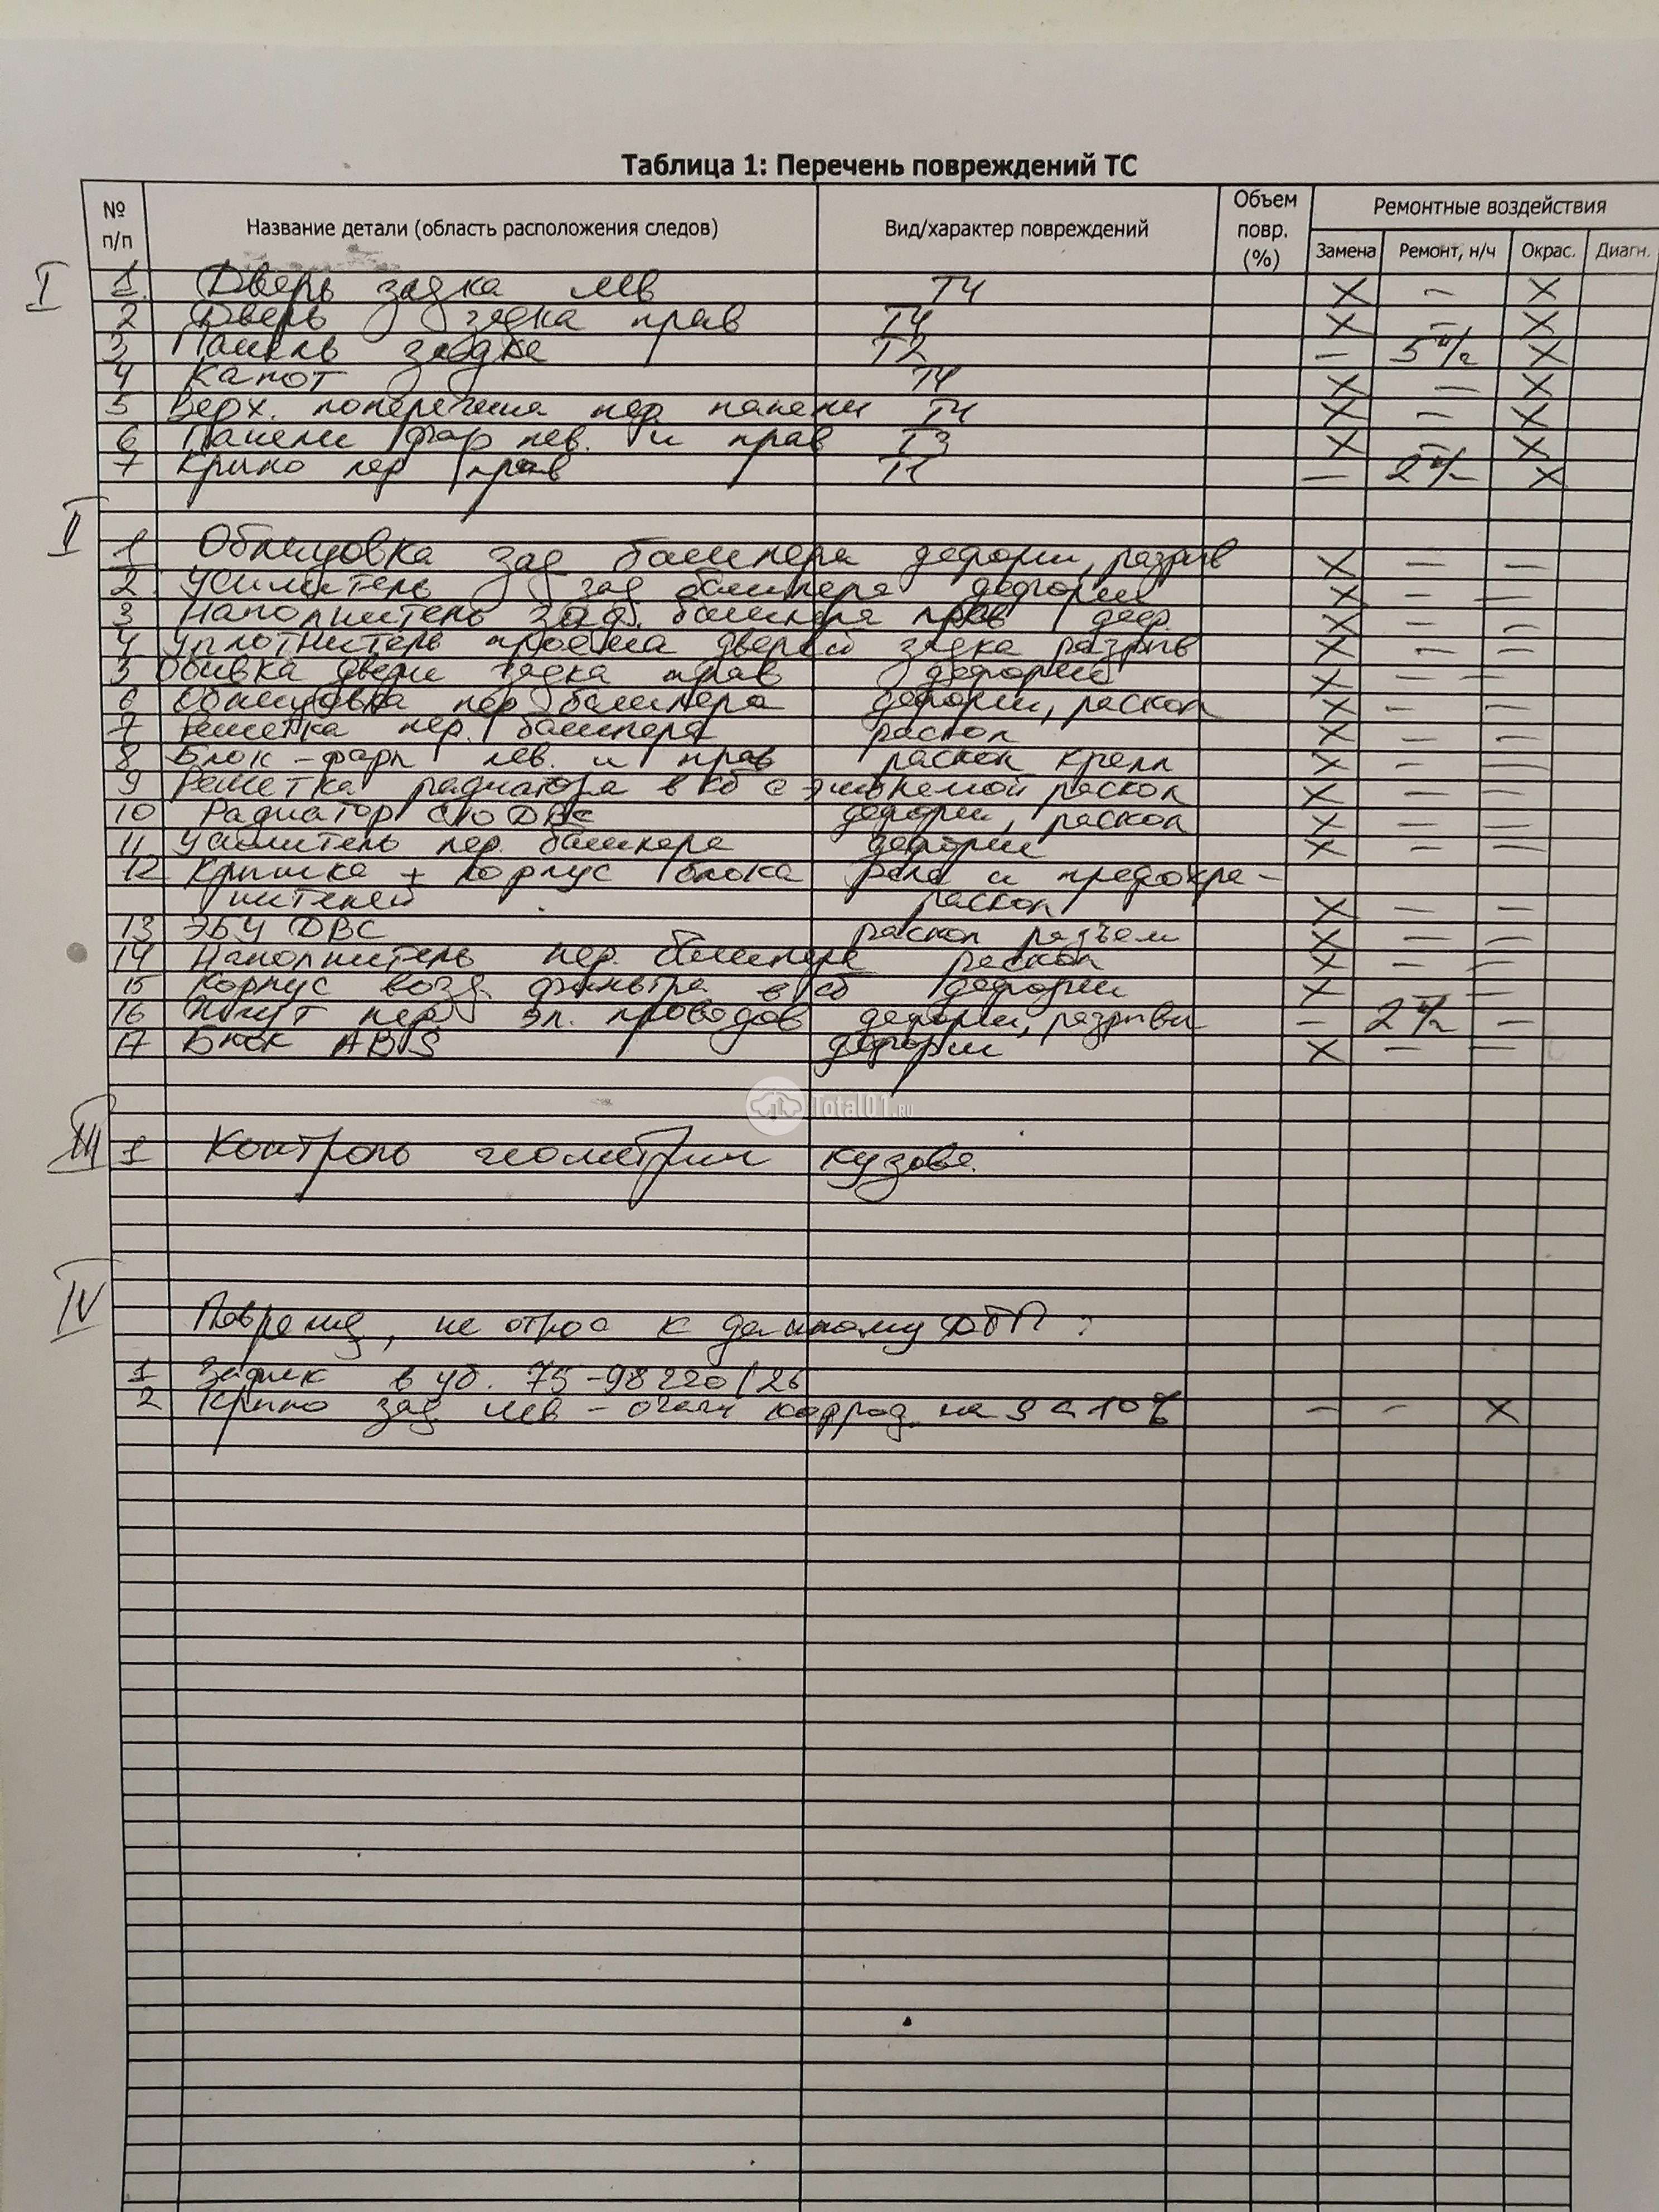 Таблица 1: Перечень повреждений ТС
№ п/п Название детали (область расположения следов) Вид/характер повреждений Объем повр. (%) Ремонтные воздействия
Замена Ремонт, н/ч Окрас. Диагн.
I
1. Дверь задка лев Т4 X — X
2 Дверь задка прав Т4 X — X
3 Панель задка Т2 — 5 н/ч X
4 Капот Т4 X — X
5 Верх. поперечина пер. панели Т4 X — X
6 Панели фар лев. и прав Т3 X — X
7 Крыло пер прав Т1 — 2 н/ч X
II
1 Облицовка зад бампера деформ, разрыв X — —
2 Усилитель зад бампера деформ X — —
3 Наполнитель зад. бампера прав деф. X — —
4 Уплотнитель проема дверей задка разрыв X — —
5 Обивка двери задка прав деформ X — —
6 Облицовка пер бампера деформ, раскол X — —
7 Решетка пер. бампера раскол X — —
8 Блок-фары лев. и прав раскол крепл X — —
9 Решетка радиатора в сб с эмблемой раскол X — —
10 Радиатор с/о ДВС деформ, раскол X — —
11 Усилитель пер. бампера деформ X — —
12 Крышка + корпус блока реле и предохра-
нителей раскол X — —
13 ЭБУ ДВС раскол разъем X — —
14 Наполнитель пер. бампера раскол X — —
15 Корпус возд. фильтра в сб деформ X — —
16 Жгут пер эл. проводов деформ, разрывы — 2 н/ч —
17 Блок ABS деформ X — —
Total01.RU
III
1 Контроль геометрии кузова.
IV
Поврежд, не относ к данному ДТП:
1 Задик в уб. 75-98220/26
2 Крыло зад лев – очаги коррод. на S < 10% — — X